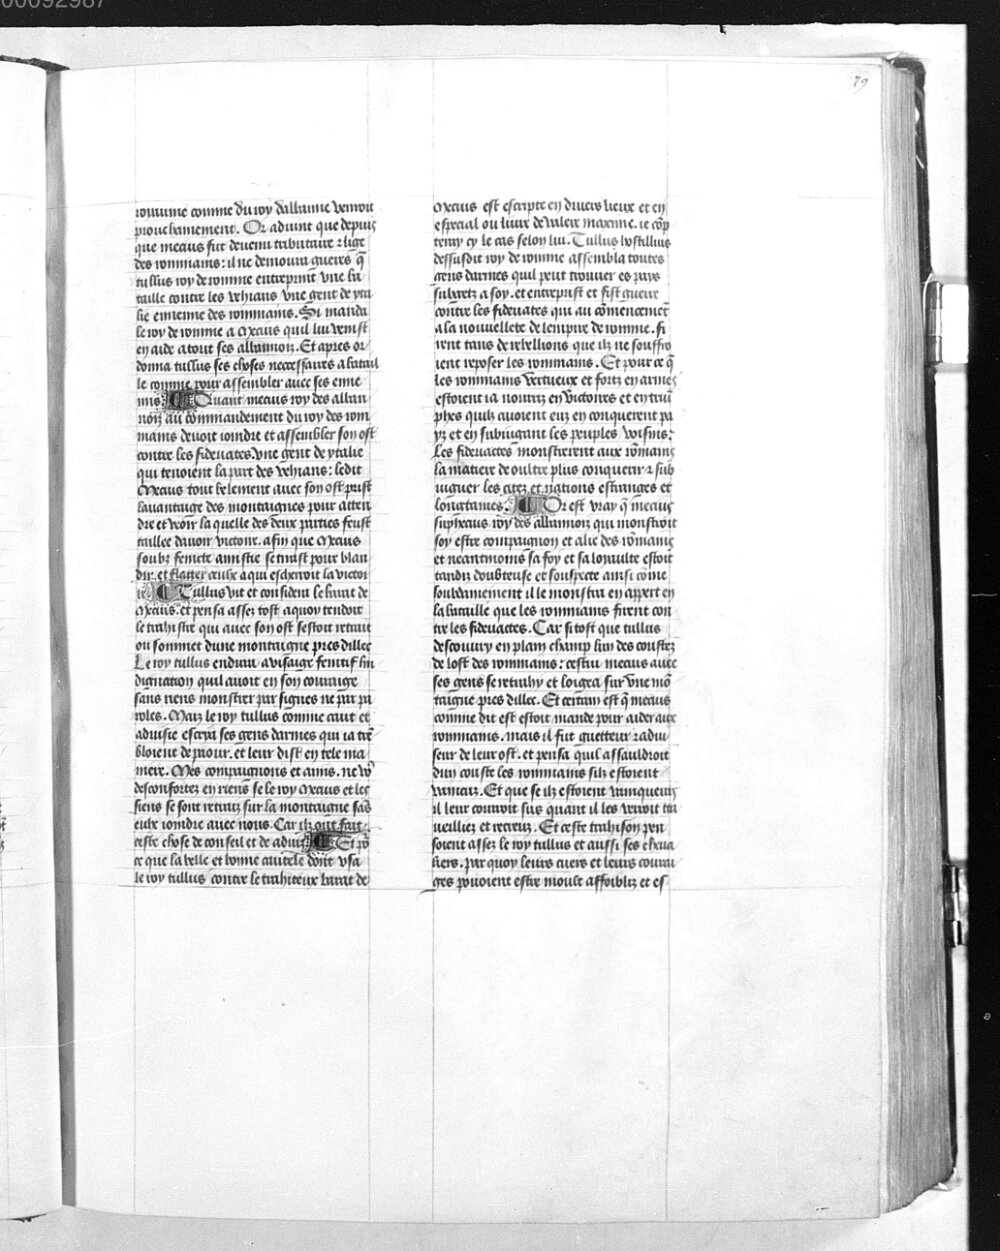 00092987
79
romme comme du roy dallianie venroit
prouchainement. Or aduint que depuis
que mecius fut deuenu tributaire ⁊ lige
des rommains: il ne demoura gueres q̃
tullus roy de romme entreprinst vne ba
taille contre les vehians vne gent de yta
lie ennemie des rommains. Si manda
le roy de romme a Mecius quil lui venist
en aide a tout ses albanois. Et apres or
donna tullus ses choses necessaires a batail
le comme pour assembler auec ses enne
mis. Quant mecius roy des alban
nois au commandement du roy des rom
mains deuoit ioindre et assembler son ost
contre les fideuates. vne gent de ytalie
qui tenoient la part des vehians: ledit
Mecius tout belement auec son ost prist
lauantage des montaignes pour atten
dre et veoir la quelle des deux parties feust
taillee dauoir victoire. afin que Mecius
soubz feincte amistie se traist pour blan
dir. et flatter ceulx a qui escherroit la victoi
re. Tullus vit et considera le barat de
Mecius. et pensa assez tost a quoy tendoit
le trahistre qui auec son ost sestoit retrait
ou sommet dune montaigne pres dillec
Le roy tullus endura a visaige sentif lin
dignation quil auoit en son couraige
sans riens monstrer par signes ne par pa
roles. Mais le roy tullus comme caut et
aduise escria ses gens darmes qui ia trẽ
bloient de paour. et leur dist en tele ma
niere. Mes compaignons et amis. ne voꝰ
desconfortez en riens se le roy Mecius et les
siens se sont retraiz sur la montaigne sãs
eulx ioindre auec nous. Car ilz ont fait
ceste chose de conseil et de aduis. Et po
ce que la belle et bonne cautele dont vsa
le roy tullus contre le trahiteux barat de
Mecius est escripte en diuers lieux et en
especial ou liure de Valere maxime. ie cõp
teray cy le cas selon lui. Tullus hostillius
dessusdit roy de romme assembla toutes
gens darmes quil peut trouuer es pays
subgetz a soy. et entreprist et fist guerre
contre les fideuates qui au cõmencemẽt
a la nouuellete de lempire de romme. fi
rent tans de rebellions que ilz ne souffro
ient reposer les rommains. Et pour ce q̃
les rommains vertueux et fortz en armes
estoient ia nourriz en victoires et en triũ
phes quilz auoient euz en conquerant pa
yz et en subiugant les peuples voisins:
Les fideuactes monstrerent aux rõmains
la matiere de oultre plus conquerir ⁊ sub
iuguer les citez et nations estranges et
longtaines. Or est vray q̃ mecius
suphecius roy des albanois qui monstroit
soy estre compaignon et alie des rõmains
et neantmoins sa foy et sa loyaulte estoit
tandis doubteuse et souspecte ainsi cõme
soubdainement il le monstra en appert en
la bataille que les rommains firent con
tre les fideuactes. Car si tost que tullus
descouury en plain champ lun des coustez
de lost des rommains: cestui mecius auec
ses gens se retrahy et logea sur vne mõ
taigne pres dillec. Et certain est q̃ mecius
comme dit est estoit mande pour aider aux
rommains. mais il fut guetteur ⁊ adui
seur de leur ost. et pensa quil assauldroit
dun couste les rommains silz estoient
vaincuz. Et que se ilz estoient vainqueurs
il leur courroit sus quant il les verroit tra
ueilliez et recreuz. Et ceste trahison pen
soient assez le roy tullus et aussi ses cheua
liers. par quoy leurs cuers et leurs courai
ges pouoient estre moult affoibliz et es